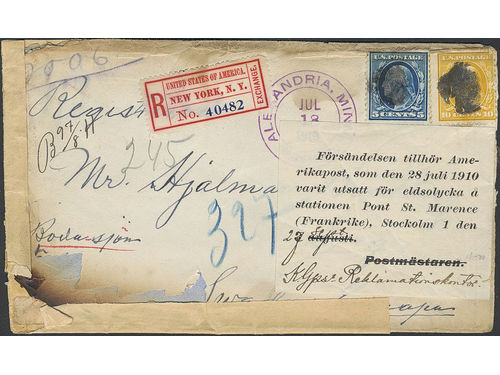 2906
UNITED STATES OF AMERICA.
R
NEW YORK, N. Y.
EXCHANGE.
No. 40482
ALEXANDRIA, MIN
JUL
18
1910
U.S. POSTAGE
5 CENTS 5
U.S. POSTAGE
10 CENTS 10
245
Mr. Hjalma
327
Försändelsen tillhör Ame-
rikapost, som den 28 juli 1910
varit utsatt för eldsolycka å
stationen Pont St. Marence
(Frankrike), Stocolm 1 den
27
Postmästaren.
Reklamationskontor